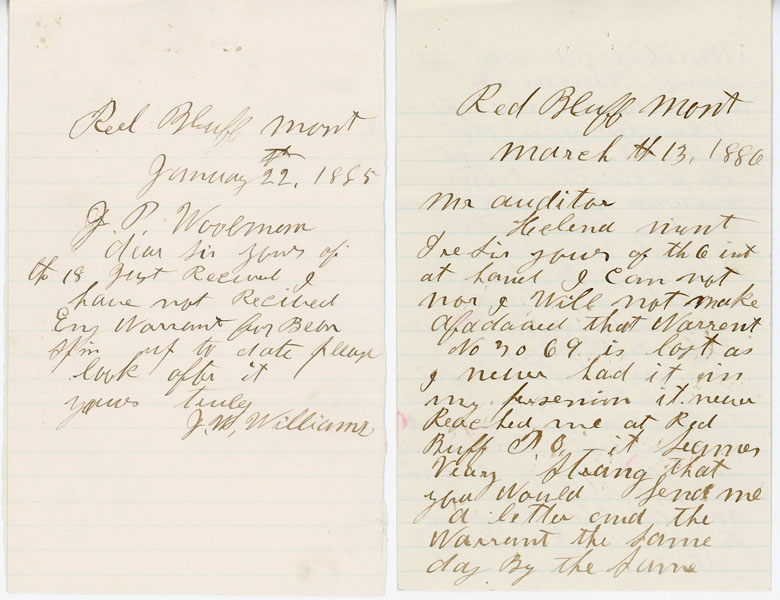 Red Bluff Mont
January 22th, 1885
J. P. Woolman
dear Sir yours of
th 18 Just Received I
have not Recived
Eny Warrant for Bear
Skin up to date please
look after it
yours truly
J. W. Williams
Red Bluff Mont
March th 13, 1886
Mr auditor
Helena Mont
Sir yours of th 6 int
at hand I Can not
nor I Will not make
that Warrent
No 3069 is lost as
I never had it in
my it never
Reached me at Red
Buff P. O. it Seames
Veary Strang that
you Would Send me
a letter and the
Warrant the Same
day By the Same